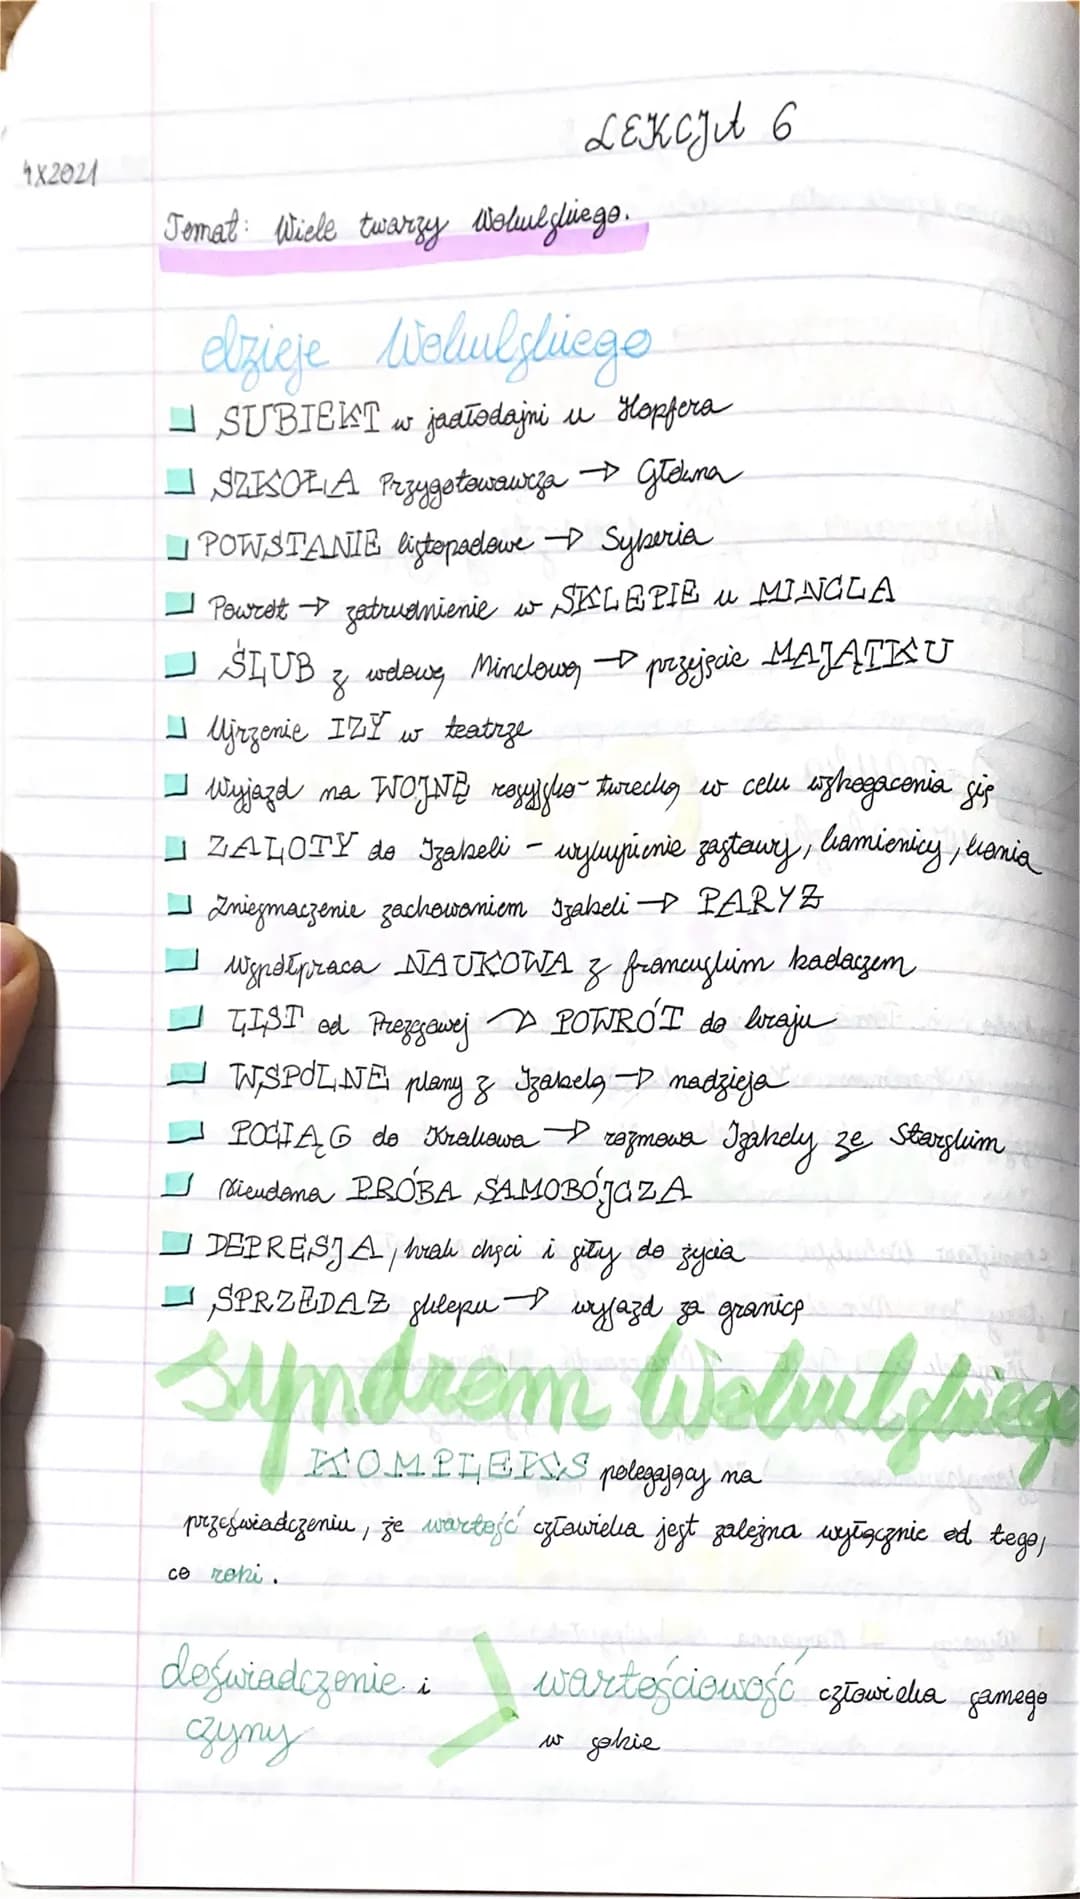 LEKCJA 6
4X2021
Temat: Wiele twarzy Wokulskiego.
dzieje Wokulskiego
SUBIEKT w jadłodajni u Hopfera
SZKOŁA Przygotowawcza → Główna
POWSTANIE listopadowe → Syberia
Powrót → zatrudnienie w SKLEPIE u MINCLA
ŚLUB z wdową Minclową → przejście MAJĄTKU
Ujrzenie IZY w teatrze
Wyjazd na WOJNĘ rosyjsko-turecką w celu wzbogacenia się
ZALOTY do Izabeli - wykupienie zastawy, kamienicy, konia
Zniesmaczenie zachowaniem Izabeli → PARYŻ
Współpraca NAUKOWA z francuskim badaczem
LIST od Prezesowej → POWRÓT do kraju
WSPÓLNE plany z Izabelą → nadzieja
POCIĄG do Krakowa → rozmowa Izabely ze Starskim
Nieudana PRÓBA SAMOBÓJCZA
DEPRESJA, brak chęci i siły do życia
SPRZEDAŻ sklepu → wyjazd za granicę
syndrom Wokulskiego
KOMPLEKS polegający na
przeświadczeniu, że wartość człowieka jest zależna wyłącznie od tego,
co robi.
doświadczenie i > wartościowość człowieka samego
czyny w sobie